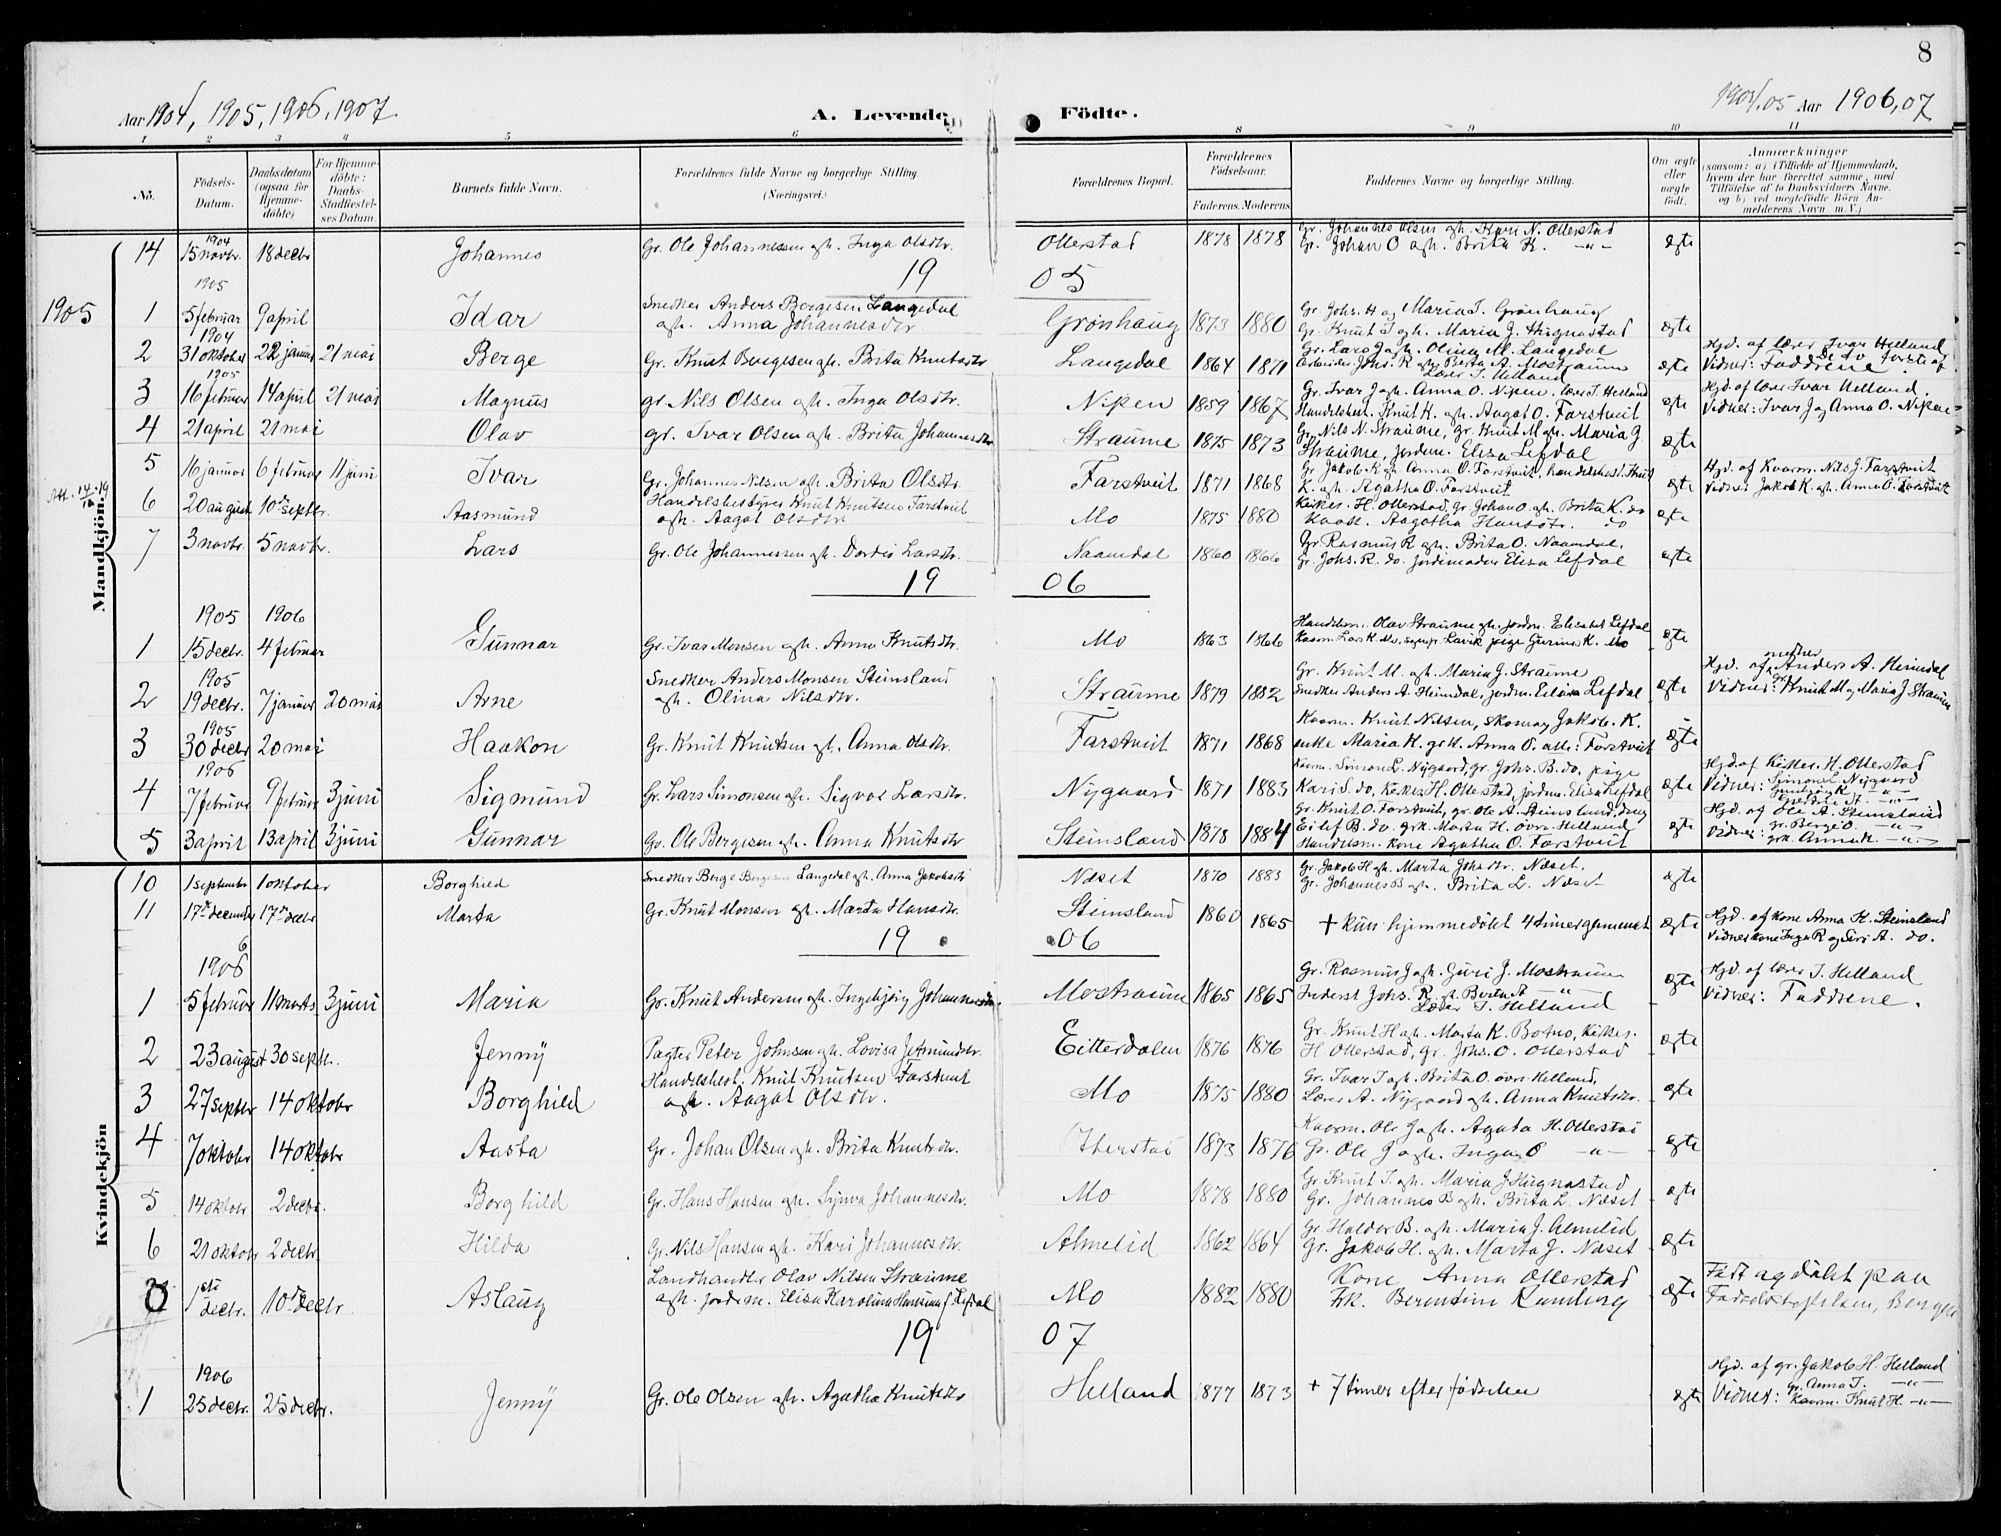 8
Aar 1904, 1905, 1906, 1907 A. Levende Födte. 1904/05 Aar 1906, 07
1 2 3 4 5 6 8 9 10 11
No. Födsels-Datum. Daabsdatum (ogsaa for Hjemmedöbte) For Hjemmedöbte: Daabs-Stadfæstelses Datum. Barnets fulde Navn. Forældrenes fulde Navne og borgerlige Stilling. (Næringsvei.) Forældrenes Bopæl. Forældrenes Födselsaar. Faderens. Moderens. Faddernes Navne og borgerlige Stilling. Om ægte eller uægte födt. Anmærkninger (saasom: a) i Tilfælde af Hjemmedaab, hvem der har forrettet samme, med Tilföielse af to Daabsvidners Navne. og b) ved uegtefödte Börn Anmelderens Navn m. V.)
Mandkjön.
14 1904 15 novbr. 18 decbr Johannes Gr. Ole Johannessen ogh. Inga Olsdtr. Otterstad 1878 1878 Gr. Johannes Olsen ogh. Kari N. Otterstad
Gr. Johan O ogh. Brita K. -"- ægte
1905 19 05
1905 1 5 februar 9 april Idar Snedker Anders Bergesen Langedal
ogh. Anna Johannesdtr Grønhaug 1873 1880 Gr. Johs. H og Maria I. Grønhaug
Gr. Knut I ogh. Maria J. Hugnastad ægte
2 1904 31 oktober 22 januar 21 mai Berge Gr. Knut Bergesen ogh. Brita Knutsdtr Langedal 1864 1871 Gr. Lars J ogh. Olina M. Langedal
Arbeider Johs. R ogh. Berta A. Mostraum
Lærer I. Helland ægte Hjd. af lærer Ivar Helland
Vidner: Faddrene
3 1905 16 februar 14 april 21 mai Magnus gr. Nils Olsen ogh. Inga Olsdtr. Nipen 1859 1867 Gr. Ivar J ogh. Anna O. Nipen. lærer I. Helland
Handelsbm. Knut K. ogh. Aagot O. Farstveit ægte Hjd. af lærer Ivar Helland
Vidner: Ivar J og Anna O. Nipen
4 21 april 21 mai Olav gr. Ivar Olsen ogh. Brita Johannesdtr Straume 1875 1873 Gr. Nils N. Straume, gr. Knut M ogh. Maria J
Straume, jordem. Elisa Lefdal ægte
5 16 januar 6 februar 11 juni Ivar Gr. Johannes Nilsen ogh. Brita Olsdtr Farstveit 1871 1868 Gr. Jakob K ogh Anna O. Farstveit, handelsbest. Knut
K. ogh. Agatha O. Farstveit ægte Hjd. af Kaarm. Nils J. Farstveit
Vidner Jakob K. ogh. Anna O. Farstveit
6 20 august 10de septbr. Aasmund Handelsbestyrer Knut Knutsen Farstveit
ogh. Aagot Olsdtr Mo 1875 1880 Kirkes. H. Otterstad, gr. Johan O. ogh. Brita K. do
Kaar. Aagatha Hansdtr. do ægte
7 3 novbr. 5 novbr. Lars Gr. Ole Johannessen ogh. Dordei Larsdtr. Naamdal 1860 1866 Gr Rasmus R ogh. Brita O. Naamdal,
Gr. Johs. R. do. Jordemoder Elisa Lefdal ægte
19 06
1905 1906
1 15 decbr. 4 februar Gunnar Gr. Ivar Monsen ogh. Anna Knutsdtr. Mo 1863 1866 Handelsm. Olav Straume ogh. jordm. Elisabet Lefdal
Kaarm. Lars K. Mo, Lavik pige Gurina K. Mo ægte
2 1905 19 decbr. 7 januar 20 mai Arne Snedker Anders Monsen Steinsland
ogh. Olina Nilsdtr. Straume 1879 1882 Gr. Knut M. ogh. Maria J. Straume
Snedker Anders A. Heimdal, jordem. Elisa Lefdal ægte Hjd. af snedker Anders A. Heimdal
Vidner: gr. Knut M og Maria J. Straum
3 1905 30 decbr 20 mai Haakon Gr. Knut Knutsen ogh. Anna Olsdtr. Farstveit 1871 1868 Kaarm. Knut Nilsen, skomag. Jakob. K.
enke Maria K. grk. Anna O. alle: Farstveit ægte
4 1906 7 februar 9 februar 3 juni Sigmund Gr. Lars Simonsen ogh. Sigvor Larsdtr. Nygaard 1871 1883 Kaarm. Simon L. Nygaard, gr. Johs. B. do. pige
Kari S. do, Kirkes H. Otterstad, jordem. Elisa Lefdal ægte Hjd. af Kirkes. H. Otterstad
Vidner: Simon L. Nygaard
5 3 april 13 april 3 juni Gunnar Gr. Ole Bergesen ogh. Anna Knutsdtr Steinsland 1878 1884 Gr. Knut O. Farstveit, gr. Ole A. Steinsland, ung
Eilef B. do. grk. Marta H. övre Helland
Handelsm. kone Agatha O. Farstveit ægte Hjd. af Ole A. Steinsland
Vidner: gr. Berge O. -"-
grk. Anna K. -"-
Kvindekjön
10 1 september 1 oktober Borghild Snedker Berge Bergesen Langedal ogh. Anna Jakobsdtr Næset 1870 1883 Gr. Jakob H ogh. Marta Johsdtr. Næset.
Gr. Johannes B ogh. Brita L. Næset ægte
11 17de december 17de decbr Marta Gr. Knut Monsen ogh. Marta Hansdtr. Steinsland 1860 1865 + kun hjemmedöbt 4 timer gammelt ægte Hjd. af kone Anna K. Steinsland
Vidner kone Inga R og Siri A. do.
19 06
1906
1 5 februar 11 marts 3 juni Maria Gr. Knut Andersen ogh. Ingebjörg Johannesdtr Mostraum 1865 1865 Gr. Rasmus J ogh. Guri J. Mostraum
Inderst Johs. R. ogh. Berta A -"-
Lærer I. Helland ægte Hjd. af lærer I. Helland
Vidner: Faddrene.
2 23 august 30 septbr. Jenny Pagter Peter Johnsen ogh. Lovisa Jetmundsdtr. Eitterdalen 1876 1876 Gr. Knut H ogh. Marta K. Botno, Kirkes.
H. Otterstad, gr. Johs. O. Otterstad ægte
3 27 septbr 14 oktobr Borghild Handelsbest. Knut Knutsen Farstveit
ogh. Aagot Olsdtr. Mo 1875 1880 Gr. Ivar I ogh. Brita O. övre Helland,
Lærer A. Nygaard ogh. Anna Knutsdtr. ægte
4 7 oktobr 14 oktobr Aasta Gr. Johan Olsen ogh. Brita Knutsdtr. Otterstad 1873 1876 Kaarm. Ole J ogh. Agata H. Otterstad
Gr. Ole J ogh. Inga O -"- ægte
5 14 oktobr 2 decbr. Borghild Gr. Hans Hansen ogh. Synva Johannesdtr. Mo 1878 1880 Gr Knut I. ogh. Maria J. Hugnastad
Gr. Johannes B ogh. Brita L. Næset ægte
6 21 oktobr 2 decbr. Hilda Gr. Nils Hansen ogh. Kari Johannesdtr. Almelid 1862 1864 Gr Haldor B. ogh. Maria J. Almelid
Gr. Jakob H. ogh. Marta J. Næset ægte
1ste decbr. 10de decbr. Aslaug Landhandler Olav Nilsen Straume
ogh. jordem. Elisa Karolina Hansina J. Lefdal Mo 1882 1880 Kone Anna Otterstad
Frk. Berentine Ramberg ægte Födt og döbt paa
Födselsstiftelsen, Bergen
19 07
1906
1 25 decbr. 25 decbr. Jenny Gr. Ole Olsen ogh. Agatha Knutsdtr Helland 1877 1873 + 7 timer efter födselen ægte Hjd. af gr. Jakob H. Helland
Vidner: gr. Anna I. -"-
Kaarm. Knut H. -"-